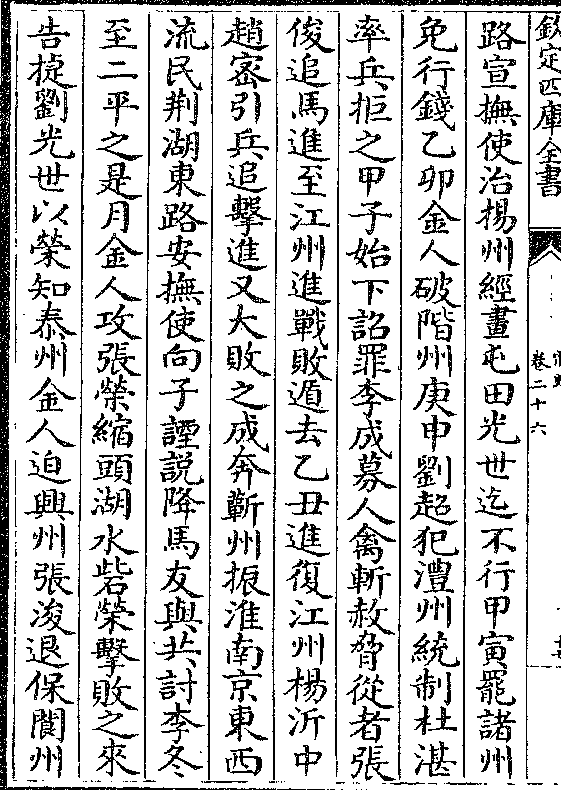 欽定四庫全書
卷二十六
路宣撫使治楊州經畫屯田光世迄不行甲寅罷諸州
免行錢乙卯金人破階州庚申劉超犯澧州統制杜湛
率兵拒之甲子始下詔罪李成募人禽斬赦脅從者張
俊追馬進至江州進戰敗遁去乙丑進復江州楊沂中
趙密引兵追擊進又大敗之成奔蘄州振淮南京東西
流民荆湖東路安撫使向子諲説降馬友與共討李冬
至二平之是月金人攻張榮縮頭湖水砦榮擊敗之來
告捷劉光世以榮知泰州金人迫興州張浚退保閬州